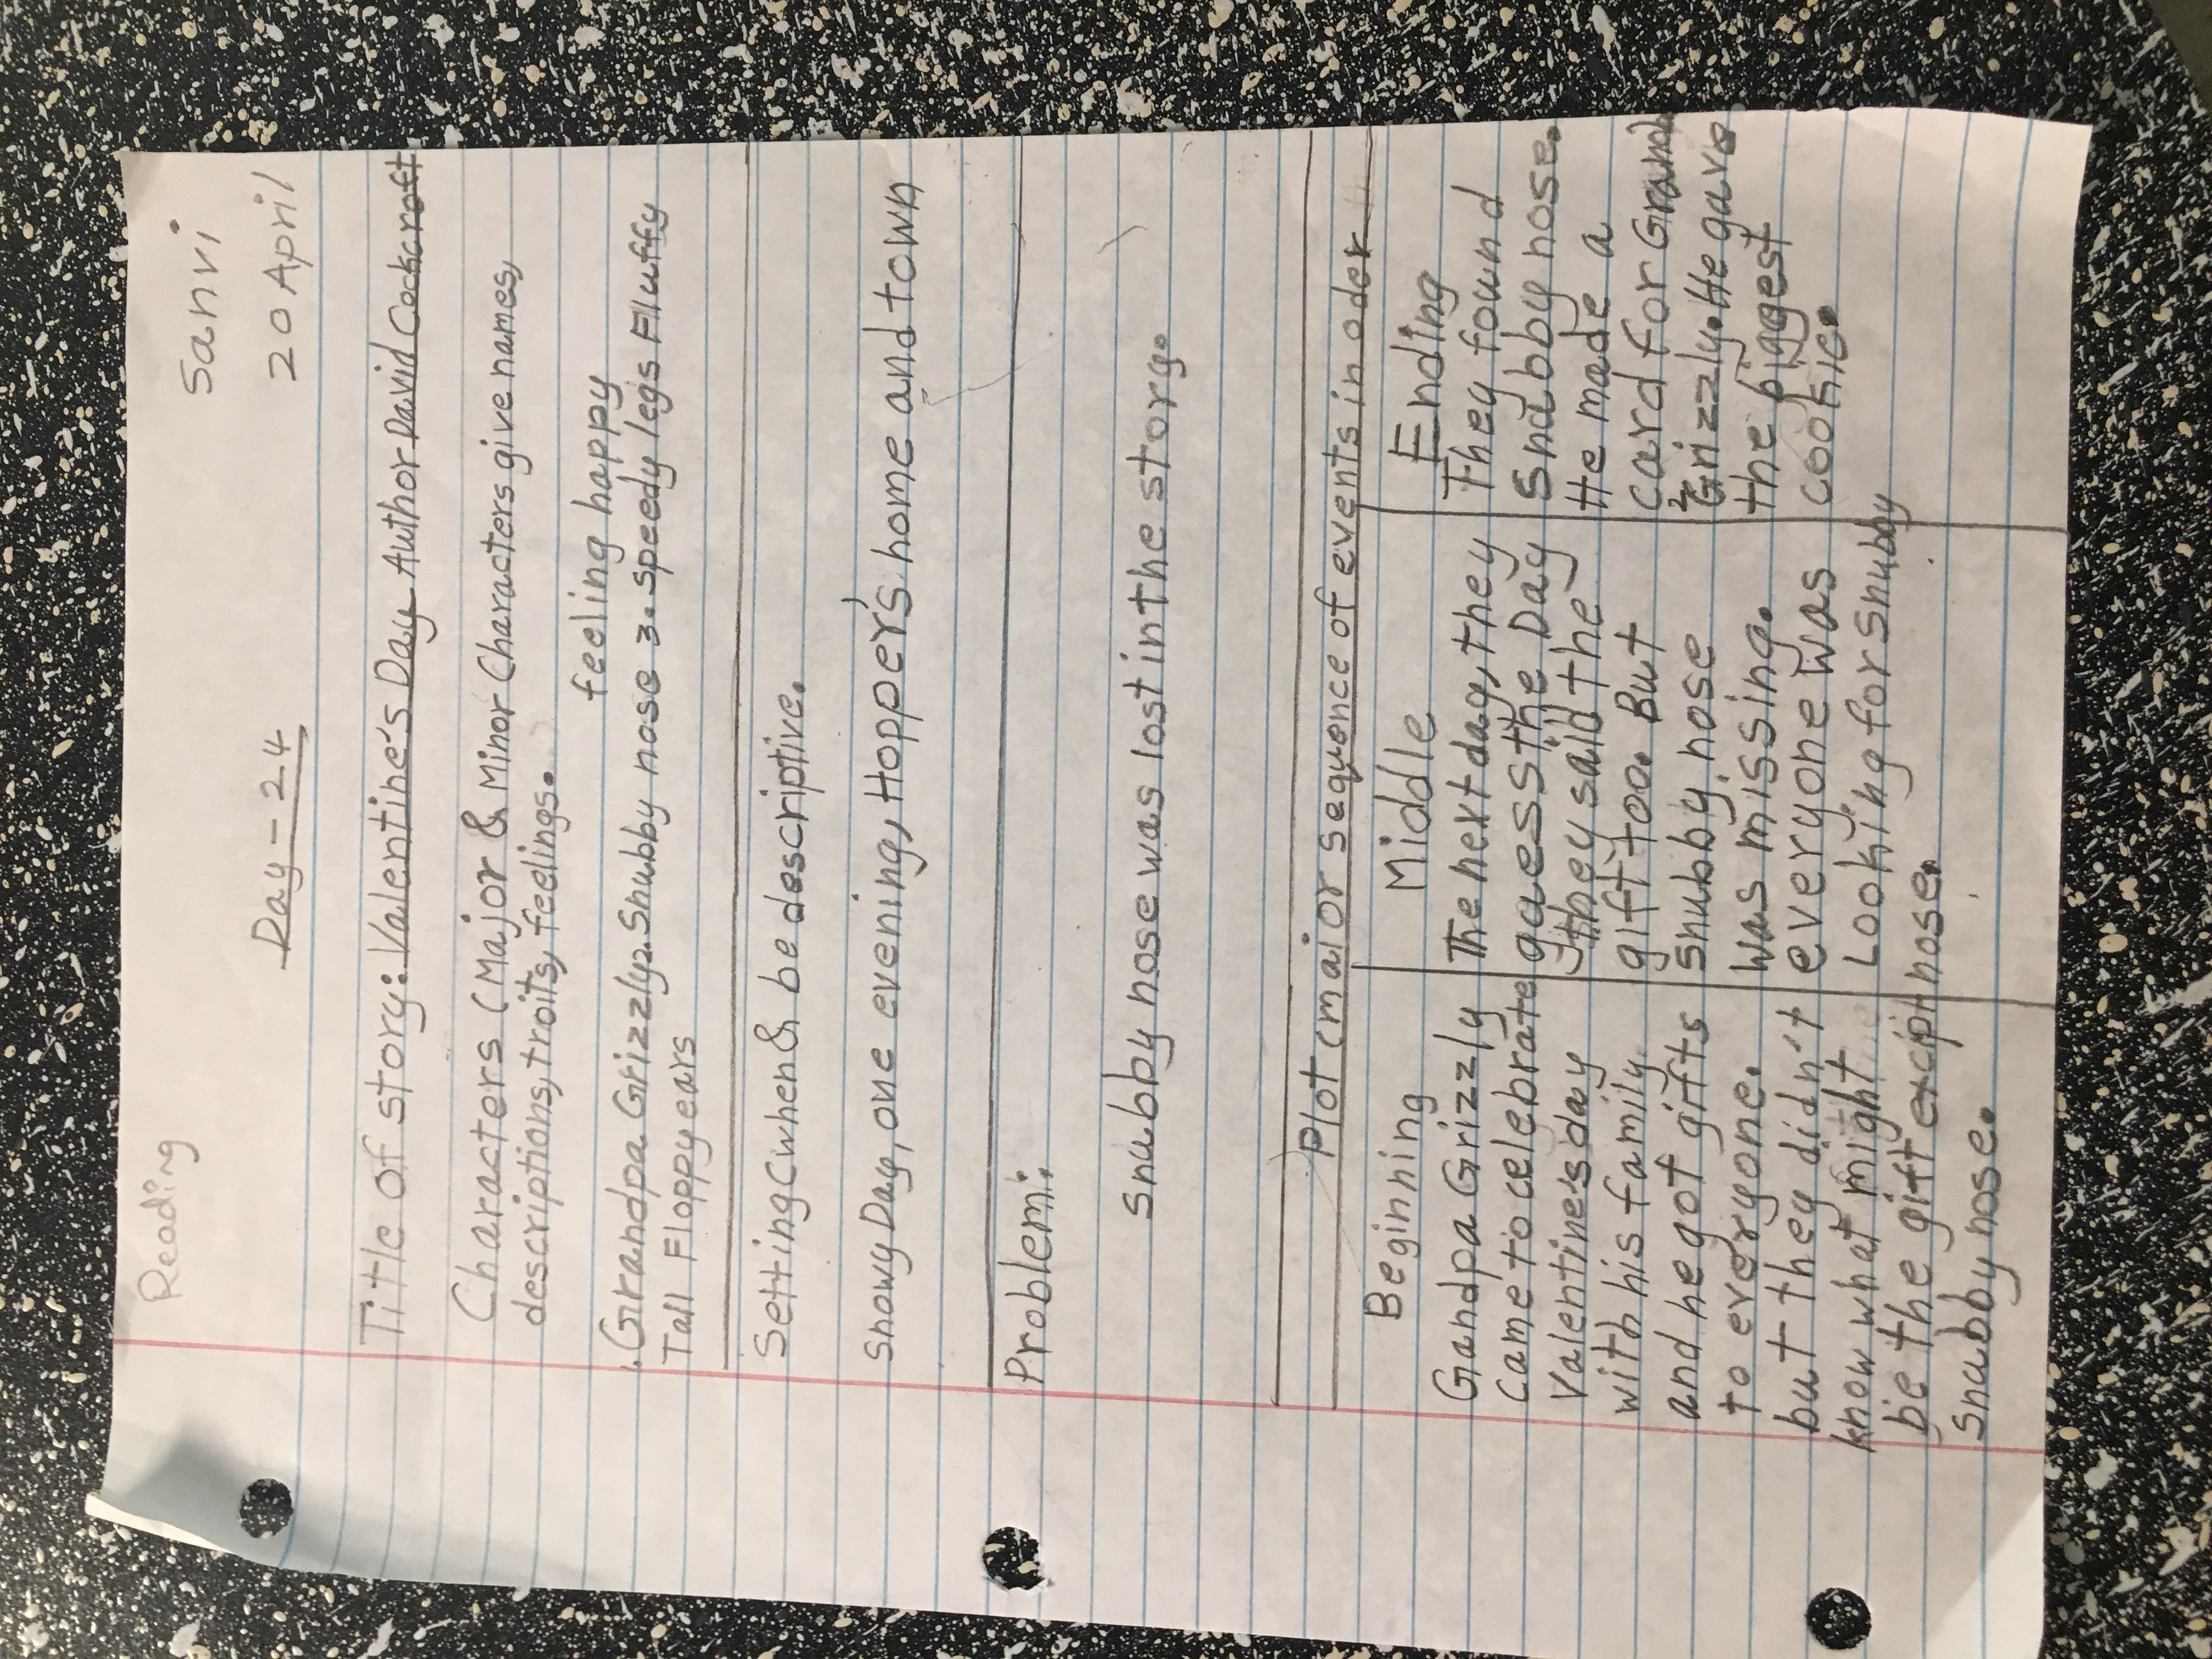 Reading
Sanvi
Day - 24
20 April
Title of story: Valentine's Day Author David Cockcroft
Characters (Major & Minor Characters give names,
descriptions, troits, feelings.
feeling happy
. Grandpa Grizzly 2. Snubby nose 3. Speedy legs Fluffy
Tall Floppy ears
Setting (when & be descriptive.
Snowy Day, one evening, Hopper's home and town
Problem:
Snubby nose was lost in the story.
Plot (maior sequence of events in oder
Beginning
Gandpa Grizzly
came to celebrate
Valentine's day
with his family.
and he got gifts
to everyone.
but they didn't
know what might
be the gift excipt
snubby nose.
Middle
The next day, they
guess the Day
they said the
gift too. But
Snubby nose
was missing.
everyone was
Looking for Snubby
nose.
Ending
They found
Snubby nose.
He made a
card for
Grizzly. He gave
the biggest
cookie.